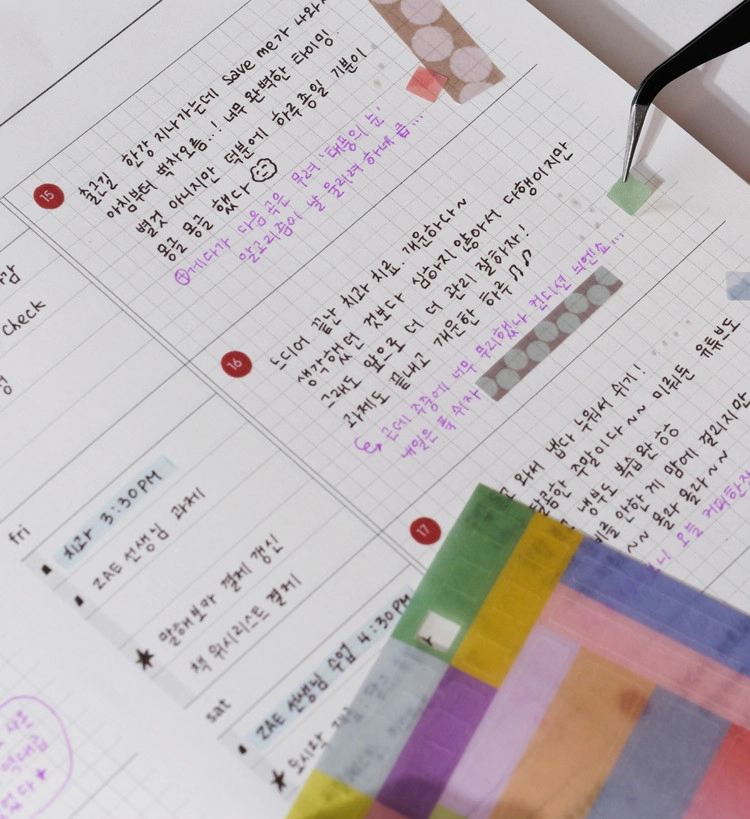 check
fri
치과 3:30PM
ZAE 선생님 과제
말해보카 결제 갱신
책 위시리스트 결제
sat
ZAE 선생님 수업 4:30PM
15
출근길 한강 지나가는데 save me가 나와서
아침부터 벅차오름..! 너무 완벽한 타이밍.
별것 아니지만 덕분에 하루종일 기분이
몽글몽글 했다
게다가 다음 곡은 무려 '태풍의 눈'
알고리즘이 날 울리려 하네 흡...
16
드디어 끝난 치과 치료. 개운하다~
생각했던 것보다 심하지 않아서 다행이지만
그래도 앞으로 더 더 관리 잘하자!
과제도 끝내고 개운한 하루 ♫♪
근데 주중에 너무 무리했나 컨디션 늬엔쇼...
내일은 푹 쉬자
17
와서 냅다 누워서 쉬기!
주말이다~~ 미뤄둔 유튜브도
내부도 복습 완
안한 게 맘에 걸리지만
~~ 몰라 몰라~~
오늘